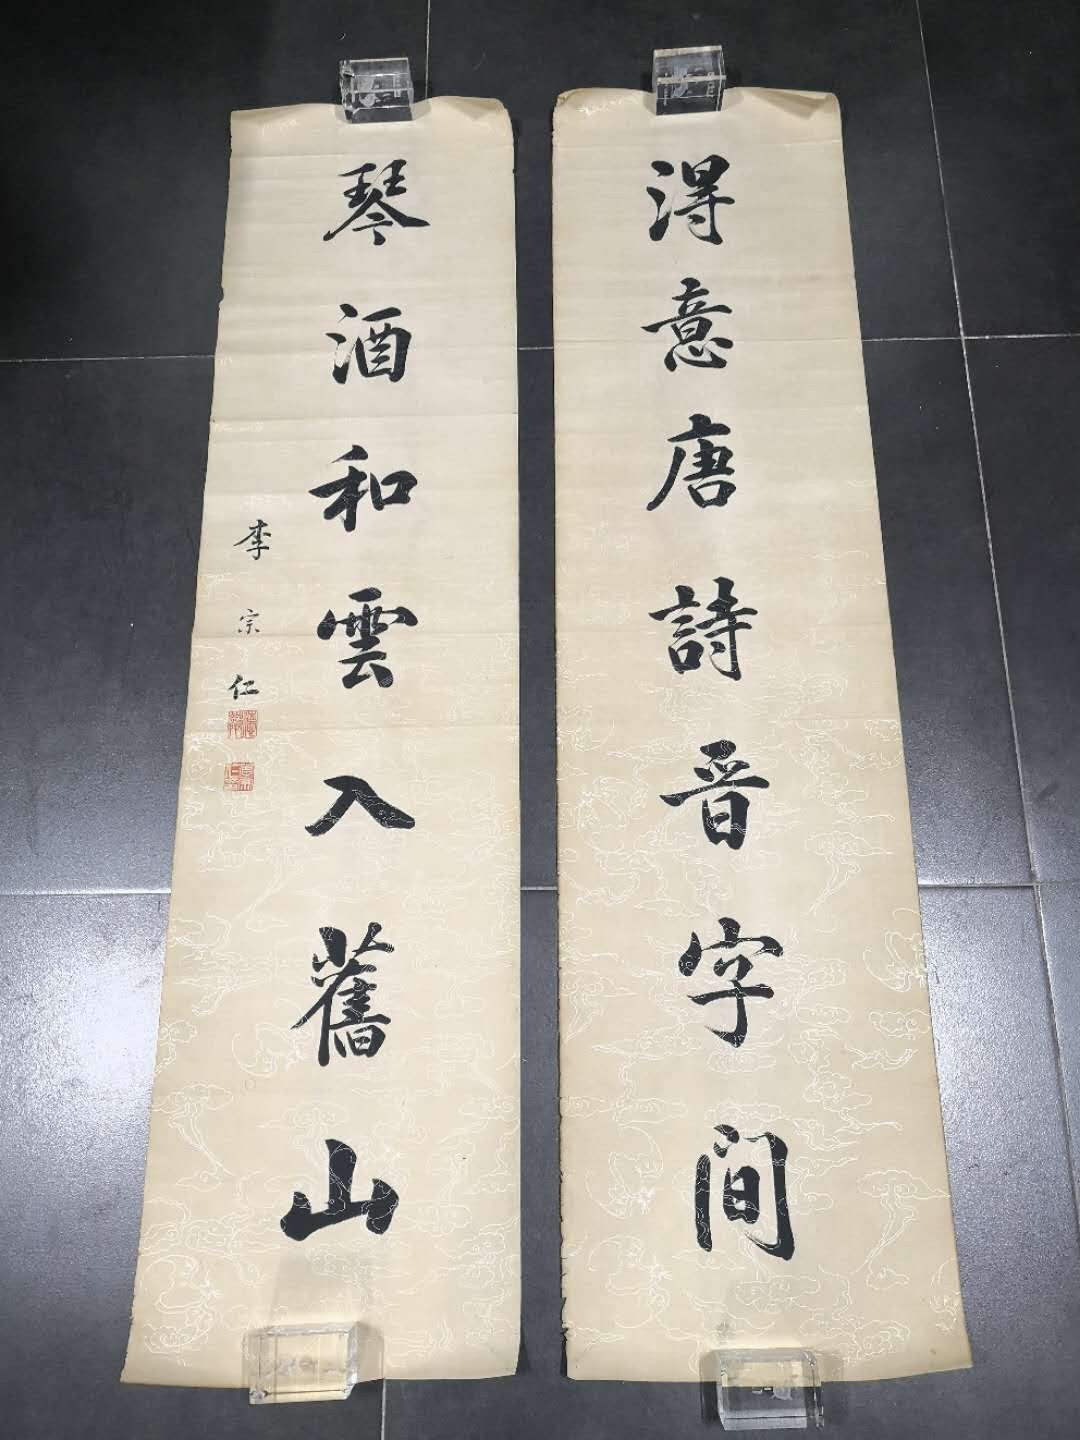 得意唐詩晋字间
琴酒和雲入舊山
李宗仁